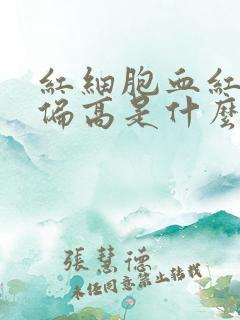 紅細胞血紅
偏高是什麼
張慧德
未經同意禁止轉載